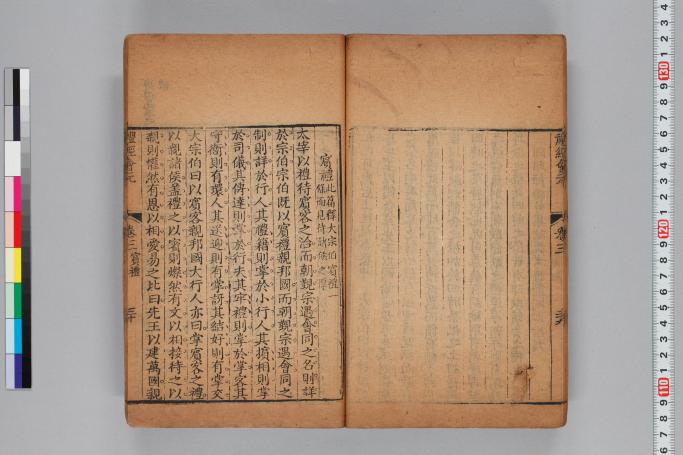 賓禮此篇釋大宗伯賓禮一
太宰以禮待賓客之治而朝覲宗遇會同之名詳
於宗伯宗伯既以賓禮親邦國而朝覲宗遇會同之
制則詳於行人其禮籍則掌於小行人其擯相則掌
於司儀其傳達則掌於行夫其牢禮則掌於掌客其
守衛則有環人其送逆則有掌訝其結好則有掌交
大宗伯曰以賓客親邦國大行人亦曰掌賓客之禮
以親諸侯蓋禮之以賓則燦然有文以相接待之以
親則懽然有恩以相愛易之比曰先王以建萬國親
禮經會元
卷三 賓禮
三十
禮經會元
卷三
130
120
110